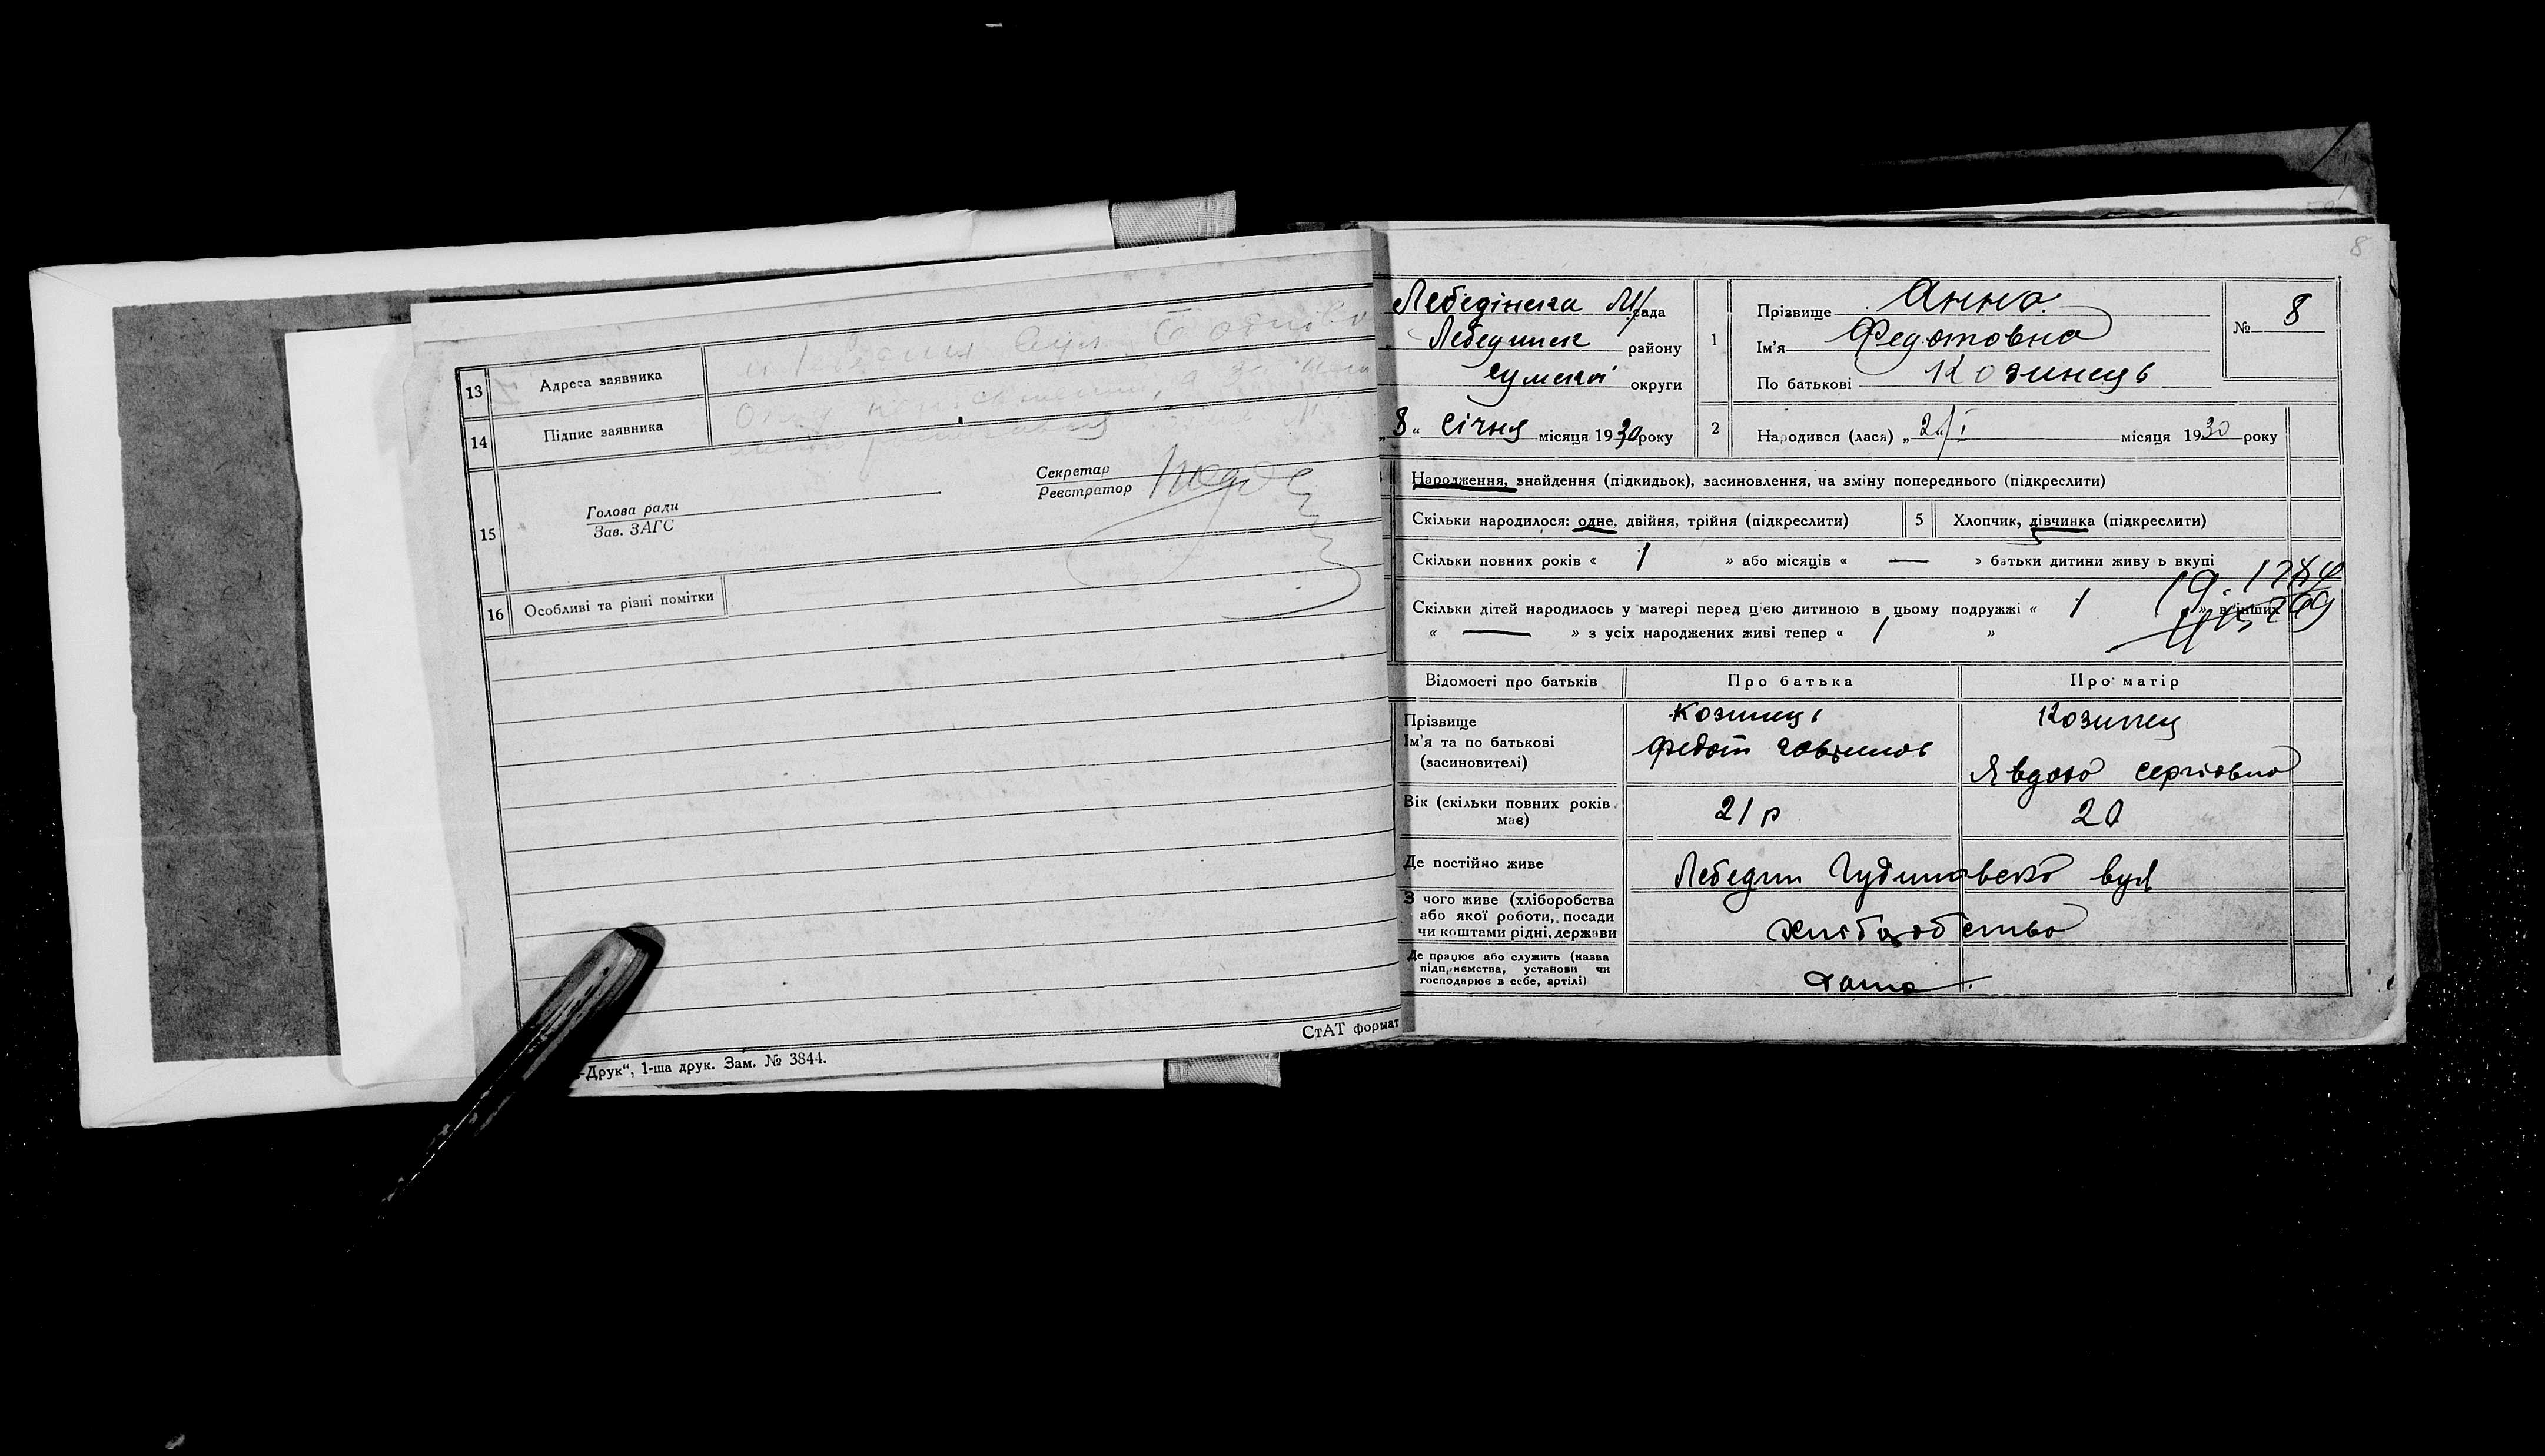 13 Адреса заявника
14 Підпис заявника
15 Голова ради
Зав. ЗАГС
Секретар
Реєстратор
16 Особливі та різні помітки
СтАТ формат
-Друк“, 1-ша друк. Зам. № 3844.
8
Лебедінська М/рада
Лебединск району
Сумскої округи
„8“ Січня місяця 1930 року
1 Прізвище Анна
Ім'я Федотовна
По батькові Козинець
№ 8
2 Народився (лася) „2“/I місяця 1930 року
Народження, знайдення (підкидьок), засиновлення, на зміну попереднього (підкреслити)
Скільки народилося: одне, двійня, трійня (підкреслити)
5 Хлопчик, дівчинка (підкреслити)
Скільки повних років « 1 » або місяців « — » батьки дитини живу ь вкупі
Скільки дітей народилось у матері перед цією дитиною в цьому подружжі « 1 » в інших
« — » з усіх народжених живі тепер « 1 »
Відомості про батьків Про батька Про матір
Прізвище Козинець Козинец
Ім'я та по батькові Федот Гаврилов Явдоха Сергіовна
(засновителі)
Вік (скільки повних років має) 21 р 20
Де постійно живе Лебедин вул
З чого живе (хліборобства
або якої роботи, посади
чи коштами рідні, держави
Хліборобство
Де працює або служить (назва
підприємства, установи чи
господарює в себе, артілі)